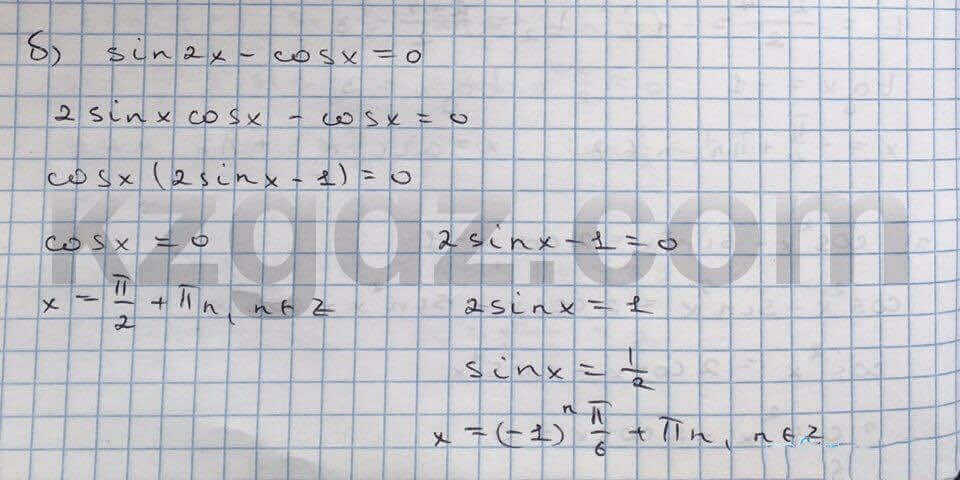 б) sin2x - cosx = 0
2sinx cosx - cosx = 0
cosx (2sinx - 1) = 0
cosx = 0
x = π/2 + πn, n∈Z
2sinx - 1 = 0
2sinx = 1
sinx = 1/2
x = (-1)ⁿ π/6 + πn, n∈Z
kzgdz.com